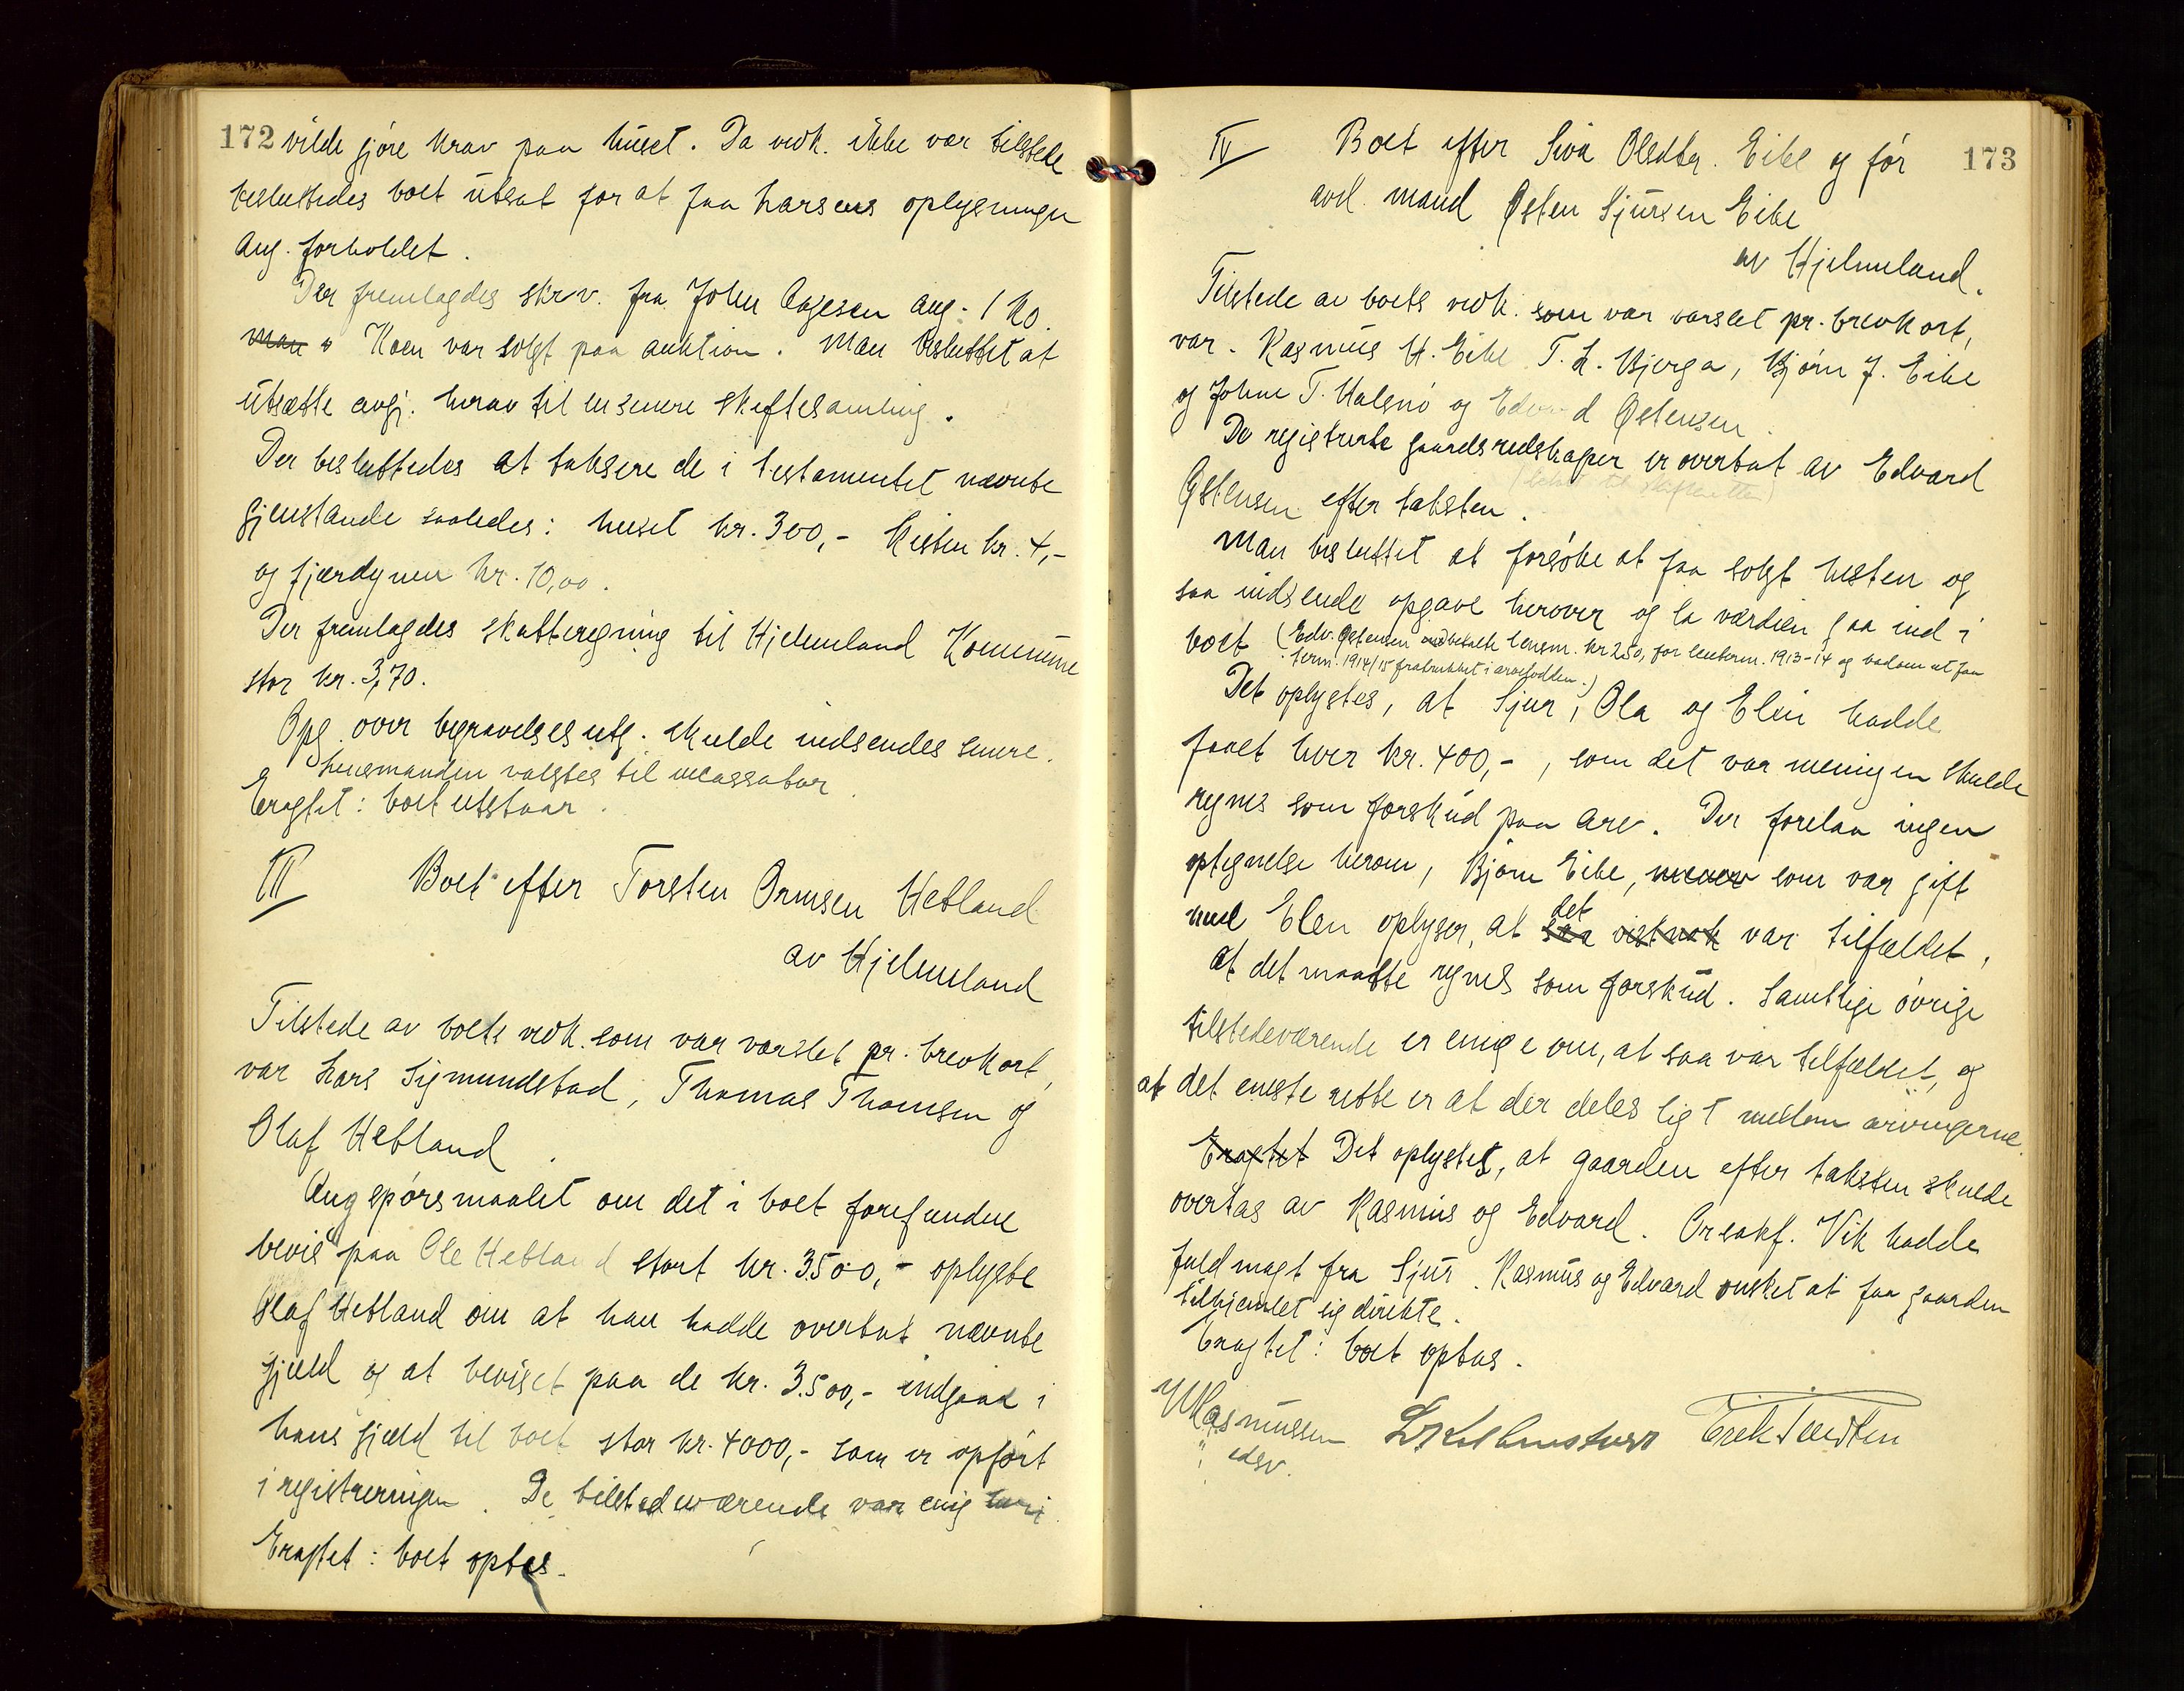 172 vilde gjøre krav paa huset. Da vedk. ikke var tilstede
besluttedes boet utsat for at faa Larsens oplysninger
ang. forholdet.
Der fremlagdes skrv. fra John Aagesen ang. 1 ko.
man Koen var solgt paa auktion. Man besluttet at
utsætte avgj. herav til en senere skiftesamling.
Der besluttedes at taksere de i testamentet nævnte
gjenstande saaledes: huset kr. 300,- Kisten kr. 4,-
og fjærdynen kr. 10,00.
Der fremlagdes skatteregning til Hjelmeland Kommune
stor kr. 3,70.
Opg. over begravelsesutg. skulde indsendes senere.
Lensmanden valgtes til incassator.
Eragtet: boet utstaar.
III Boet efter Torsten Ormsen Hetland
av Hjelmeland
Tilstede av boets vedk. som var varslet pr. brevkort,
var Lars Sigmundstad, Thomas Thomsen og
Olaf Hetland.
Ang spørsmaalet om det i boet forefundne
bevis paa Ole Hetland stort kr. 3500,- oplyste
Olaf Hetland om at han hadde overtat nævnte
gjæld og at beviset paa de kr. 3.500,- indgaar i
hans gjæld til boet stor kr. 4000,- som er opført
i registreringen. De tilstedeværende var enig heri.
Eragtet: boet optas.
IV Boet efter Siva Olsdtr. Eike og før 173
avd. mand Østen Sjursen Eike
av Hjelmeland.
Tilstede av boets vedk. som var varslet pr. brevkort,
var. Rasmus H. Eike T. L. Bjerga, Bjørn J. Eike
og Johne T. Halsnø og Edvard Østensen.
De registrerte gaardsredskaper er overtat av Edvard
Østensen efter taksten.
Man besluttet at forsøke at faa solgt hesten og
saa indsende opgave herover og la værdien gaa ind i
boet (Edv. Østensen indbetalte lensm. kr 250, for leieterm. 1913-14 og badom at faa
term. 1914/15 fratrukket i arvelodden.)
Det oplystes, at Sjur, Ola og Elin hadde
faaet hver kr. 400,-, som det var meningen skulde
regnes som forskud paa arv. Der forelaa ingen
optegnelse herom, Bjørn Eike, som var gift
med Elen oplyser, at det saa vistnok var tilfældet,
at det maatte regnes som forskud. Samtlige øvrige
tilstedeværende er enige om, at saa var tilfældet, og
at det eneste rette er at der deles ligt mellem arvingerne.
Eragtet Det oplystes, at gaarden efter taksten skulde
overtas av Rasmus og Edvard. Orsakf. Vik hadde
fuldmagt fra Sjur. Rasmus og Edvard ønsket at faa gaarden
tilhjemlet sig direkte.
Eragtet: boet optas.
Rasmussen Erik Tvedten
edsv.